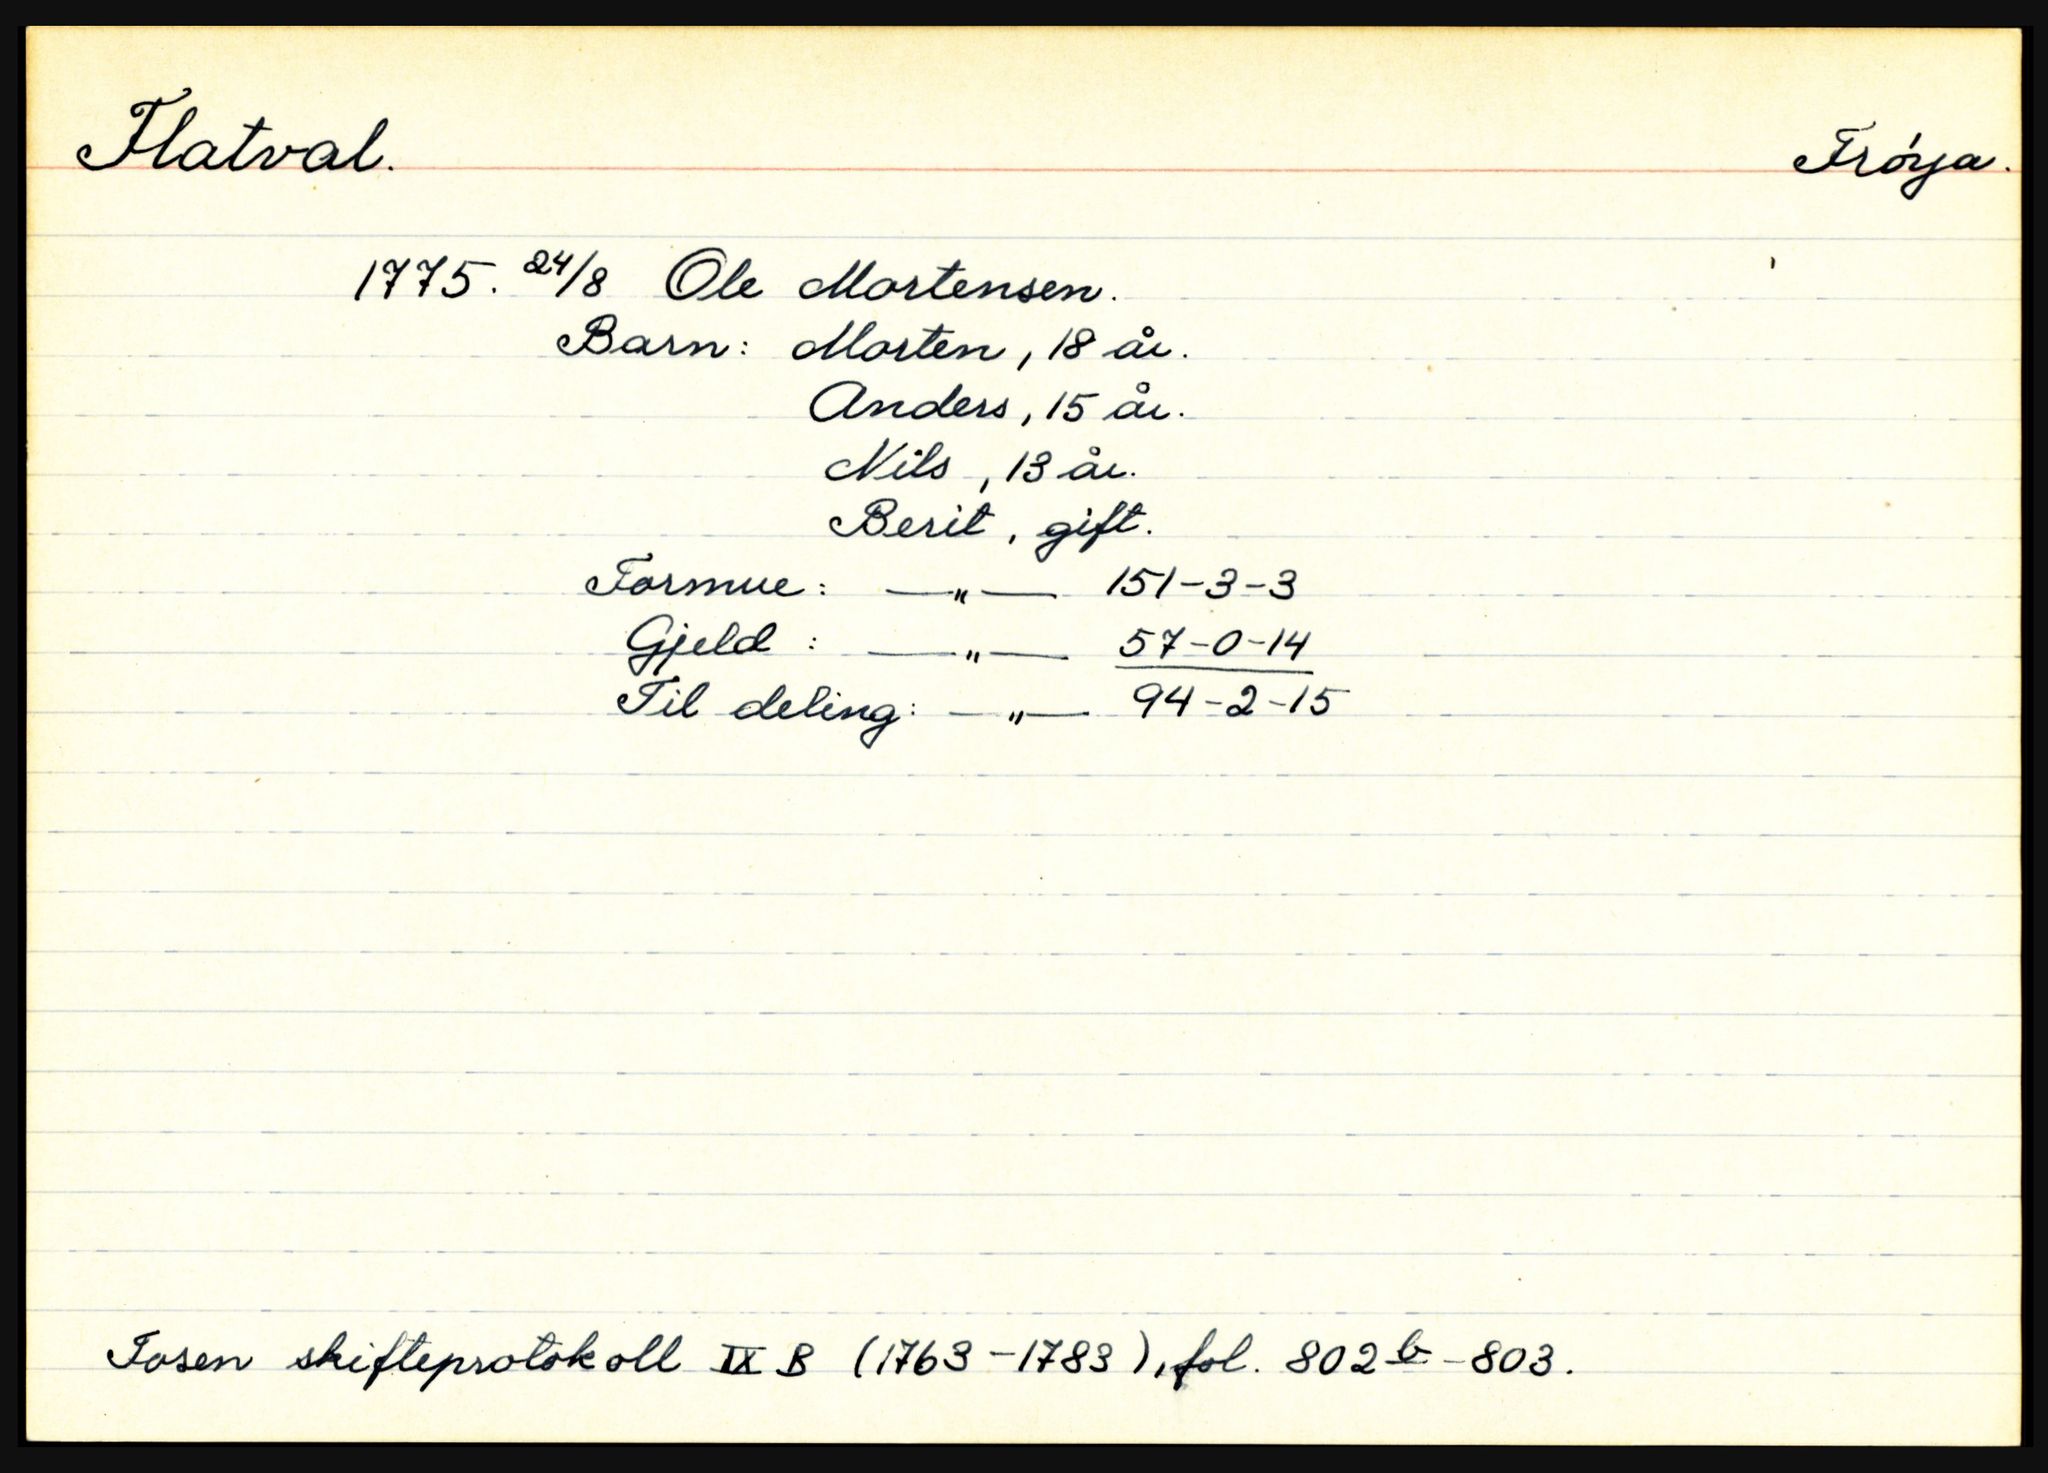 Flatval. Frøya.
1775. 24/8 Ole Mortensen.
Barn: Morten, 18 år.
Anders, 15 år.
Nils, 13 år.
Berit, gift.
Formue: —„— 151-3-3
Gjeld : —„— 57-0-14
Til deling: —„— 94-2-15
Fosen skifteprotokoll IX B (1763-1783), fol. 802 b - 803.